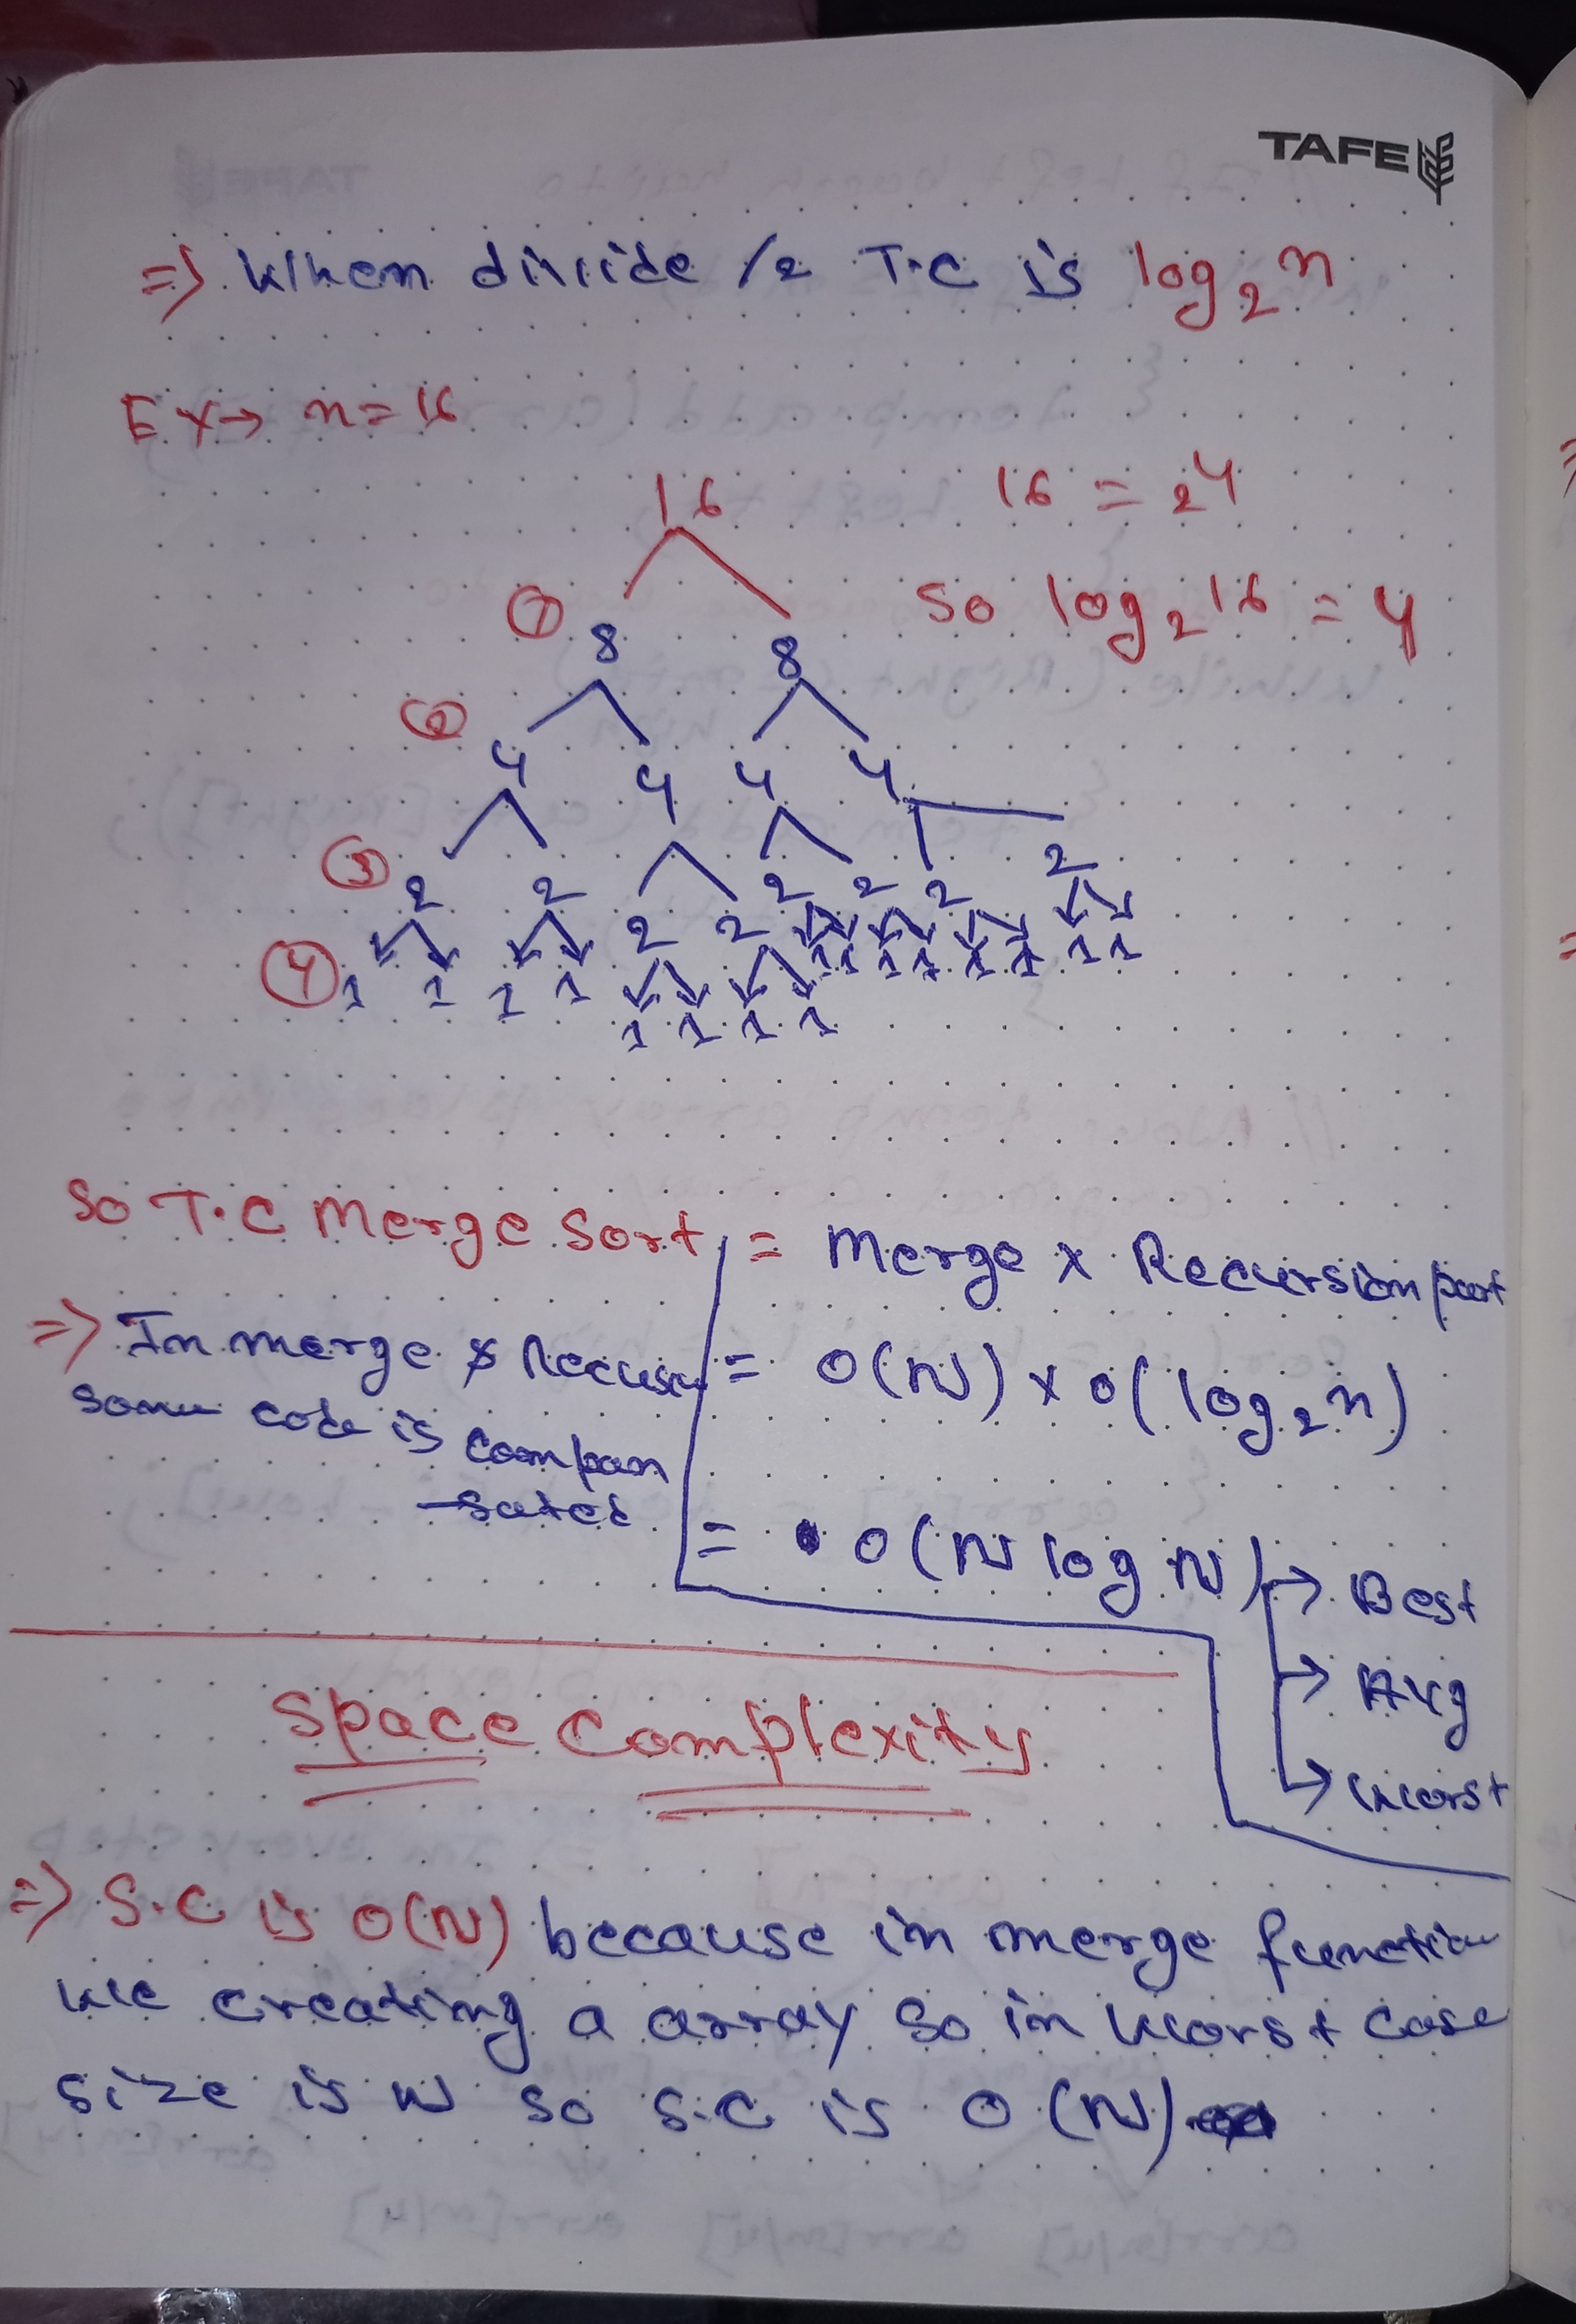 TAFE
=> When divide /2 T.C is log₂n
Ex→ n=16
16
16 = 2⁴
① 8 8
so log₂16 = 4
② 4 4 4 4
③ 2 2 2 2 2 2 2 2
④ 1 1 1 1 1 1 1 1 1 1 1 1 1 1 1 1
So T.C Merge Sort = Merge x Recursion part
=> In merge & Recursi
some code is compan
-sated
= O(N) x O(log₂n)
= O(N log N) → Best
→ Avg
→ Worst
Space Complexity
=> S.C is O(N) because in merge function
we creating a array so in worst case
size is N so S.C is O(N)